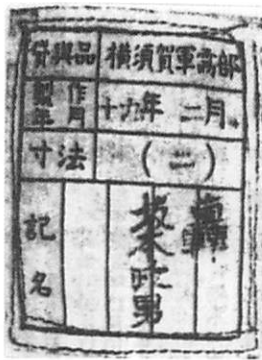 貸與品 横須賀軍需部
製作年月 十九年 二月
寸法 (二)
記名 坂本政男